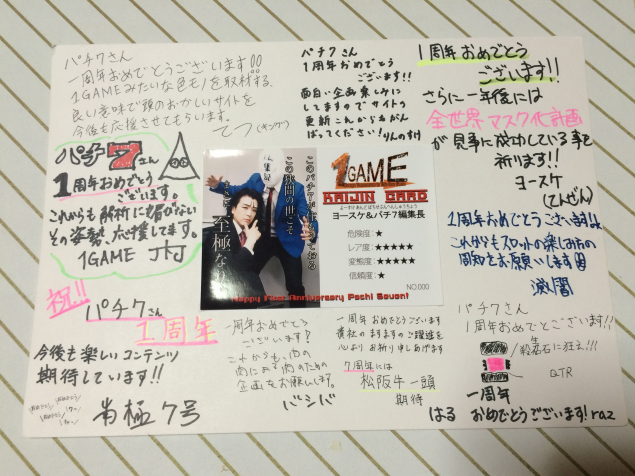 パチ7さん
一周年おめでとうございます!!
1GAMEみたいな色モノを取材する、
良い意味で頭のおかしいサイトを
今後も応援させてもらいます。
てつ(キング)
パチ7さん
1周年おめでとう
ございます!!
面白い企画楽しみに
してますのでサイトの
更新これからもがん
ばってください!りんのすけ
1周年おめでとう
ございます!!
さらに一年後には
全世界マスク化計画
が見事に成功している事を
祈ります!!
ヨースケ
(てんぜん)
パチ7さん
1周年おめでとう
ございます。
これからも解析に媚びない
その姿勢、応援してます。
1GAME
このパチ
この狭間の世こそ
まさに至極なり
1GAME
KAIJIN CARD
ヨースケ&パチ7編集長
危険度:★
レア度:★★★★★
変態度:★★★★★
信頼度:★
NO.000
Happy First Anniversary Pachi Seven!
1周年おめでとうございます!!
これからもスロットの楽しみの
周知をお願いします
祝!!
パチ7
1周年
今後も楽しいコンテンツ
期待しています!!
肖極7号
一周年おめでとう
ございます!
これからも肉の
肉による肉のための
企画をお願いします。
バシバ
一周年おめでとうございます
貴社のますますのご躍進を
心よりお祈り申しあげます
7周年には
松阪牛一頭
期待
はる
パチ7さん
1周年おめでとうございます!!
殺生石に狂え!!!
QTR
一周年
おめでとうございます!raz